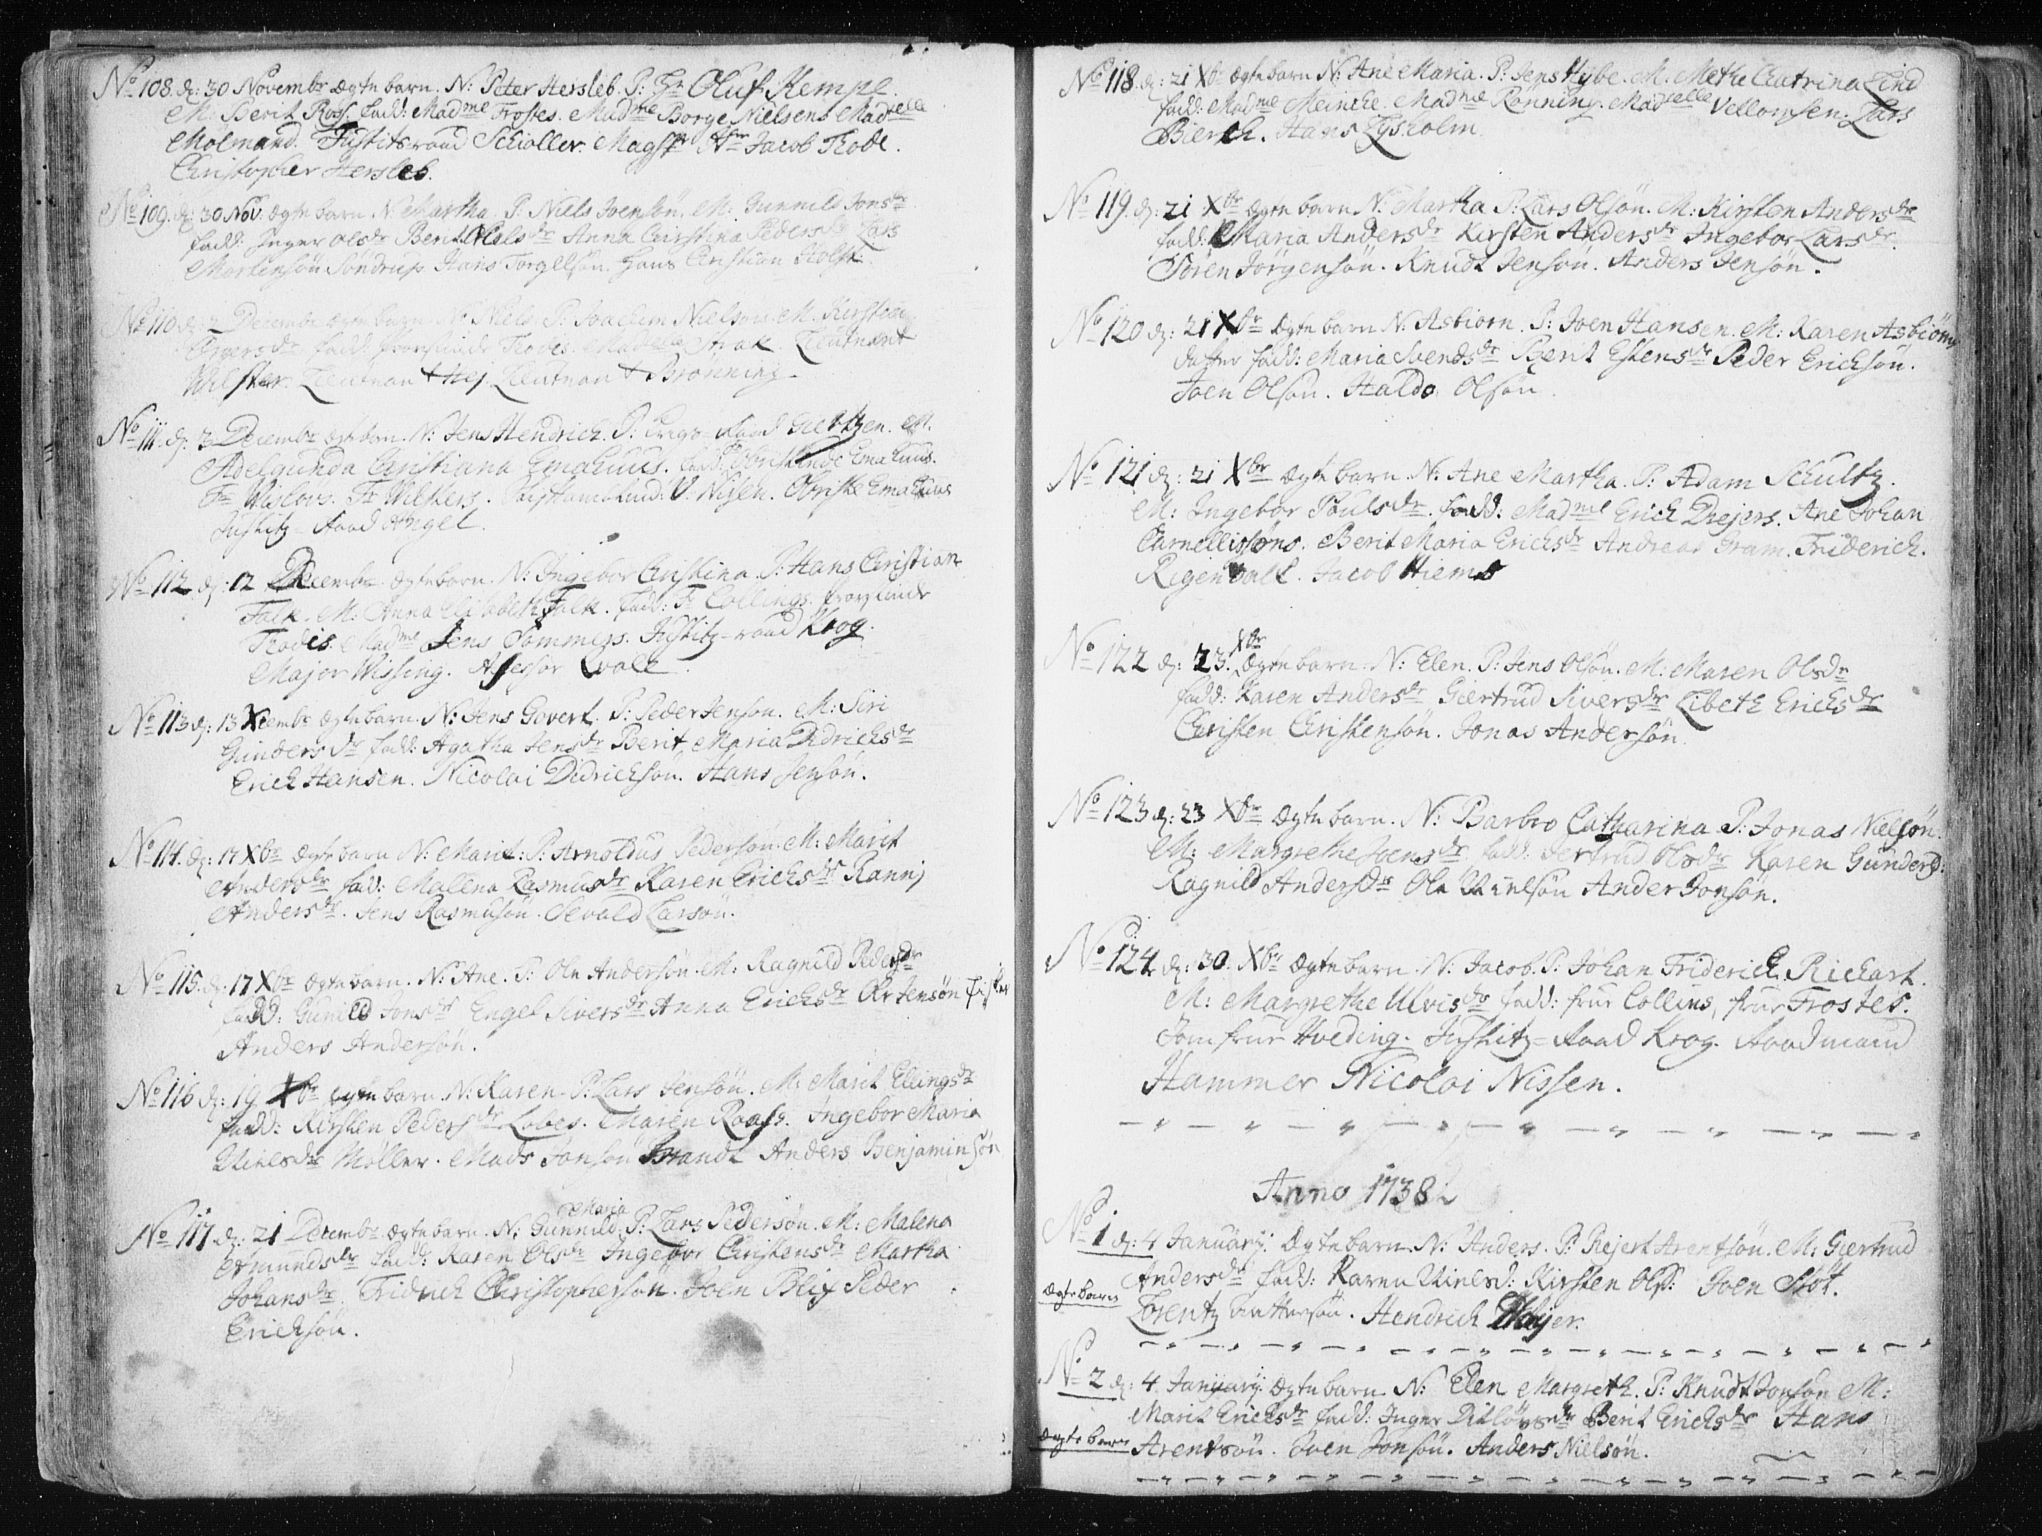 No 108. d: 30 Novembr Ægte barn. N: Peter Hersleb. P: Hr Oluf Kempe.
M: Berit Ross. fadd: Madme Frostes. Madme Borge Nielsens Madselle
Molmand. Justitsraad Schiøller. Magstr Hr Jacob Thode.
Christopher Hersleb.
No 109. d: 30 Nov. Ægte barn. N: Martha. P: Niels Joensøn. M: Gunnild Jonsdr
fadd: Inger Olsdr Berit Nielsdr Anna Christina Pedersdr Lars
Mortensøn Søndrup Hans Torgelsøn. Hans Christian Holst.
No 110. d: 2 Decembr Ægte barn. N: Niels. P: Joachim Nielsøn. M: Kirsten
fadd: Thodes. Madselle Lieutnant
Wilster. Lieutnant Hej Lieutnant Brønning
No 111. d: 3 Decembr Ægte barn. N: Jens Hendrich. P: Krigs-Raad Geltzen. M.
Adelgunda Christiana Emahuus. fadd: Obristinde Emahuus.
Fr Wislovs. Fr Wilsters. V. Nissen. Obriste Emahuus
Justitz-Raad Angel.
No 112. d: 12 Decembr Ægte barn. N: Ingebor Christina. P: Hans Christian
Falk. M: Anna Elisabeth Falk. fadd: Fr Collings.
Thodes. Madme Jens Sommers. Justitz-raad Krog.
Major Wissing. Assessor Qvale.
No 113 d: 13 Xcembr Ægte barn. N: Jens Govert. P: Peder Jensøn. M: Siri
Gundersdr fadd: Agatha Jensdr Berit Maria Didrichsdr
Erich Hansen. Nicolai Didrichsøn. Hans Jensøn.
No 114. d: 17 Xbr Ægte barn N: Marit. P: Arnoldus Pedersøn. M: Marit
Andersdr fad: Malena Rasmusdr Karen Erichsdr Ranni
Andersdr. Jens Rasmusøn. Sevald Larsøn.
No 115. d: 17 Xbr Ægte barn. N: Ane. P: Ole Andersøn. M: Ragnild Pedersdr
fadd: Gunild Jonsdr Engel Siversdr Anna Erichsdr Ole Jensøn Fisker
Anders Andersøn.
No 116 d: 19 Xbr Ægte barn. N: Karen. P: Lars Jensøn. M: Marit Ellingsdr
fadd: Kirsten Pedersdr Lobes. Maren Raass. Ingebor Maria
Nielsdr Møller. Mads Jonsøn Brandt Anders Benjaminsøn
Maria
No 117. d: 21 Decembr Ægte barn. N: Gunnild. P: Lars Pedersøn. M: Malena
Amundsdr fadd: Karen Olsdr Ingebor Christensdr Martha
Johansdr. Fridrich Christophersøn. Joen Blix Peder
Erichsøn.
No 118. d: 21 Xbr Ægte barn N: Ane Maria. P: Jens Hybe. M: Methe Catrina Lind
fadd: Madme Meincke. Madme Rønning. Madselle Vellomsen. Lars
Bierch. Hans Lysholm.
No 119. d: 21 Xbr Ægte barn N: Martha P: Lars Olsøn. M: Kirsten Andersdr
fadd: Maria Andersdr Kirsten Andersdr Ingebor Larsdr.
Søren Jørgensøn. Knudt Jensøn. Anders Jensøn.
No 120 d: 21 Xbr Ægte barn N: Asbiorn. P: Joen Hansen. M: Karen Asbiörns
datter fadd: Maria Svendsdr Berit Estensdr Peder Erichsøn.
Joen Olsøn. Haldo Olsøn.
No 121 d: 21 Xbr Ægte barn N: Ane Martha. P: Adam Schultz.
M: Ingebor Poulsdr. fadd: Madme Erich Drejers. Ane Johan
Carnellissøns. Berit Maria Erichsdr Andreas Gram. Friderich.
Rigenvall. Jacob Hiems
Xbr
No 122 d: 23. Ægte barn. N: Elen. P: Jens Olsøn. M: Maren Olsdr
fadd: Karen Andersdr Giertrud Siversdr Lisbeth Erichsdr
Christen Christensøn. Jonas Andersøn.
No 123 d: 23 Xbr Ægte barn. N: Barbro Catharina P: Jonas Nielsøn.
M: Margrethe Joensdr fadd: Gertrud Olsdr Karen Gunders:
Ragnild Andersdr Ole Nielsøn Ander Jonsøn.
No 124. d: 30. Xbr Ægte barn. N: Jacob. P: Johan Friderich Richart.
M: Margrethe Ulvisdr fadd: frue Collins, frue Frostes.
Jomfrue Hveding. Justitz-Raad Krog. Raadmand
Hammer Nicolai Nissen.
Anno 1738.
No 1 d: 4 January. Ægte barn. N: Anders. P: Rejert Arentsøn. M: Giertrud
Andersdr fadd: Karen Nielsd: Kirsten Ols: Joen Støt.
Ægte barn
Lorentz . Hendrich Meijer.
No 2 d: 4 January Ægte barn. N: Elen Margreth. P: Knudt Jonsøn M:
Marit Erichsdr fadd: Inger Ditløvsdr Berit Erichsdr Hans
Ægte barn
Arentsøn. Joen Jonsøn. Anders Nielsøn.